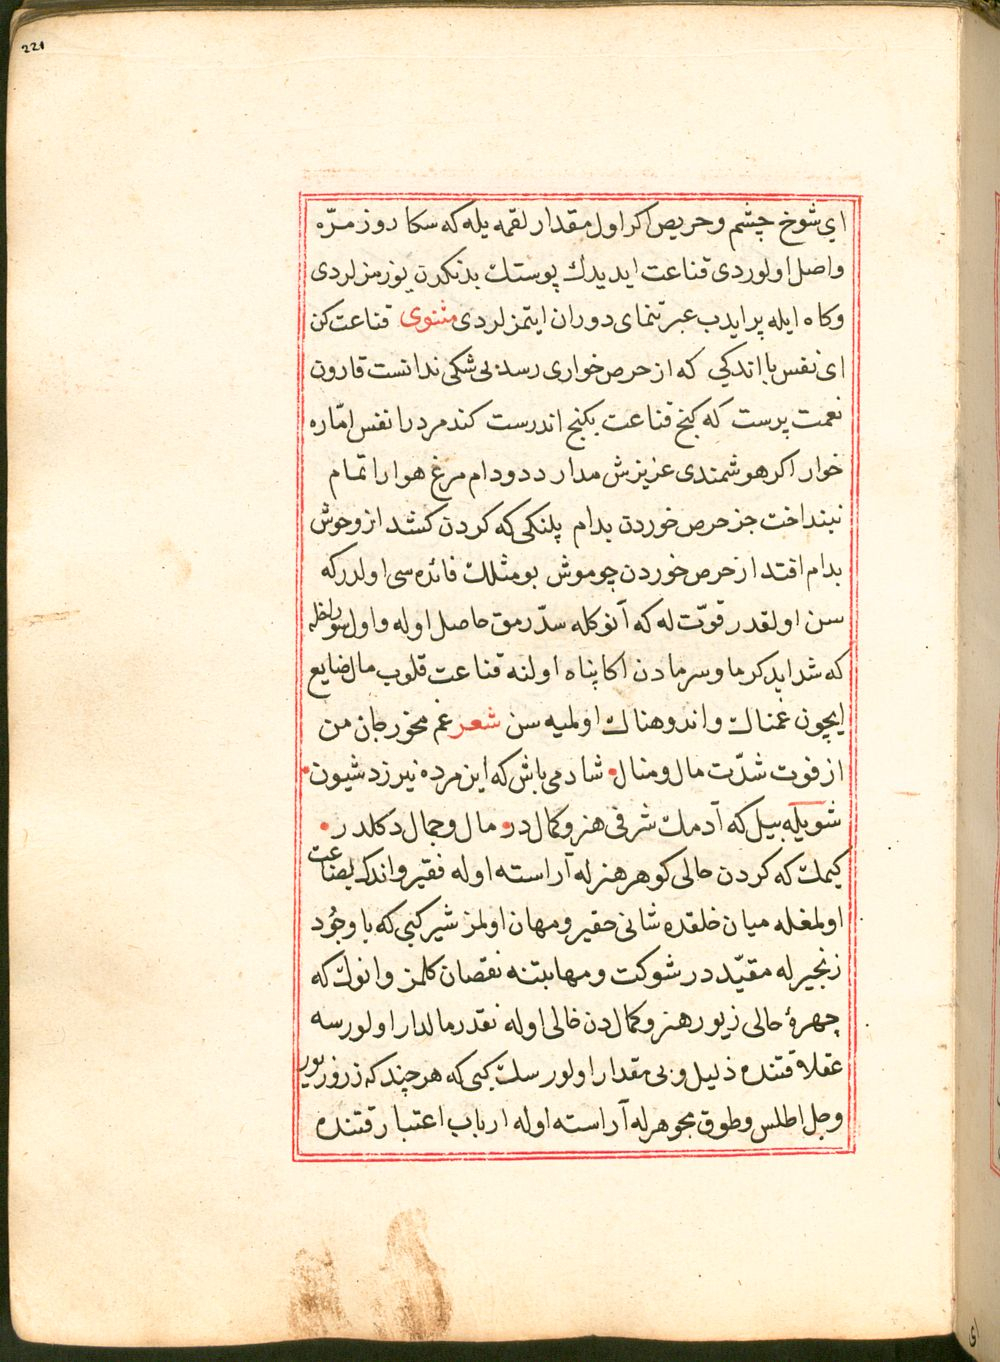 221
ای شوخ چشم و حریص اکر اول مقدار لقمه یله که سکا روز مرّه
واصل اولوردی قناعت ایدیدك پوستك بدنکدن یوزمزلردی
وکاه ایله پر ایدب عبرتنمای دوران ایتمزلردی مثنوی قناعت کن
ای نفس با اندکی که از حرص خواری رسد بی شکی ندانست قارون
نعمت پرست که کنج قناعت بکنج اندرست کند مرد را نفس امّاره
خوار اکر هوشمندی عزیزش مدار دد و دام مرغ هوا را تمام
نینداخت جز حرص خوردن بدام پلنکی که کردن کشد از وحوش
بدام افتد از حرص خوردن چو موش بو مثلك فائده سی اولدرکه
سن اولقدر قوّت له که آنوکله سدّ رمق حاصل اوله و اول سوراخله
که شداید کرما و سرمادن اکا پناه اولنه قناعت قلوب مال ضایع
ایچون غمناك و اندوهناك اولمیه سن شعر غم مخور جان من
از فوت شدّت مال و منال شاد می باش که این مرده نیرزد شیون
شویله بیل که آدمك شرفی هنر و کمال در مال و جمال دکلدر
کیمك که کردن حالی کوهر هنرله آراسته اوله فقیر و اندك بضاعت
اولمغله میان خلقده شانی حقیر و مهان اولمز شیر کبی که با وجُود
زنجیرله مقیّددر شوکت و مهابتنه نقصان کلمز و انوك که
چهرۀ حالی زیور هنر و کمالدن خالی اوله نقدر مالدار اولورسه
عقلا قتنده ذلیل و بی مقدار اولور سك کبی که هر چند که زر و زیور
و جل اطلس و طوق مجوهرله آراسته اوله ارباب اعتبار قتنده